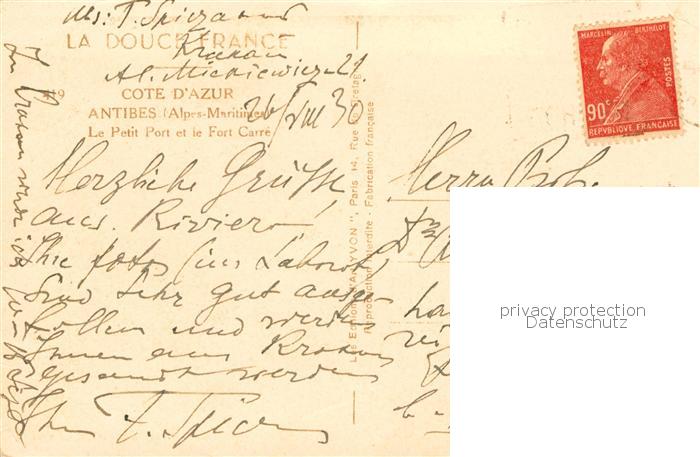 LA DOUCE FRANCE
Krakau
Al. Mickiewicza 21.
COTE D'AZUR
26/VIII 30
ANTIBES (Alpes-Maritimes)
Le Petit Port et le Fort Carré
Herzliche Grüsse
aus Riviera!
Ihre fotos (im Laborat.)
sind sehr gut ausge-
fallen und werden
Ihnen aus Krakau
gesandt werden
Ihr
In Krakau werde ich
Les Editions d'Art "YVON", Paris 14, Rue de Bretagne
Reproduction interdite - Fabrication française
MARCELIN BERTHELOT
POSTES
90c
REPVBLIQVE FRANÇAISE
Herrn
privacy protection
Datenschutz